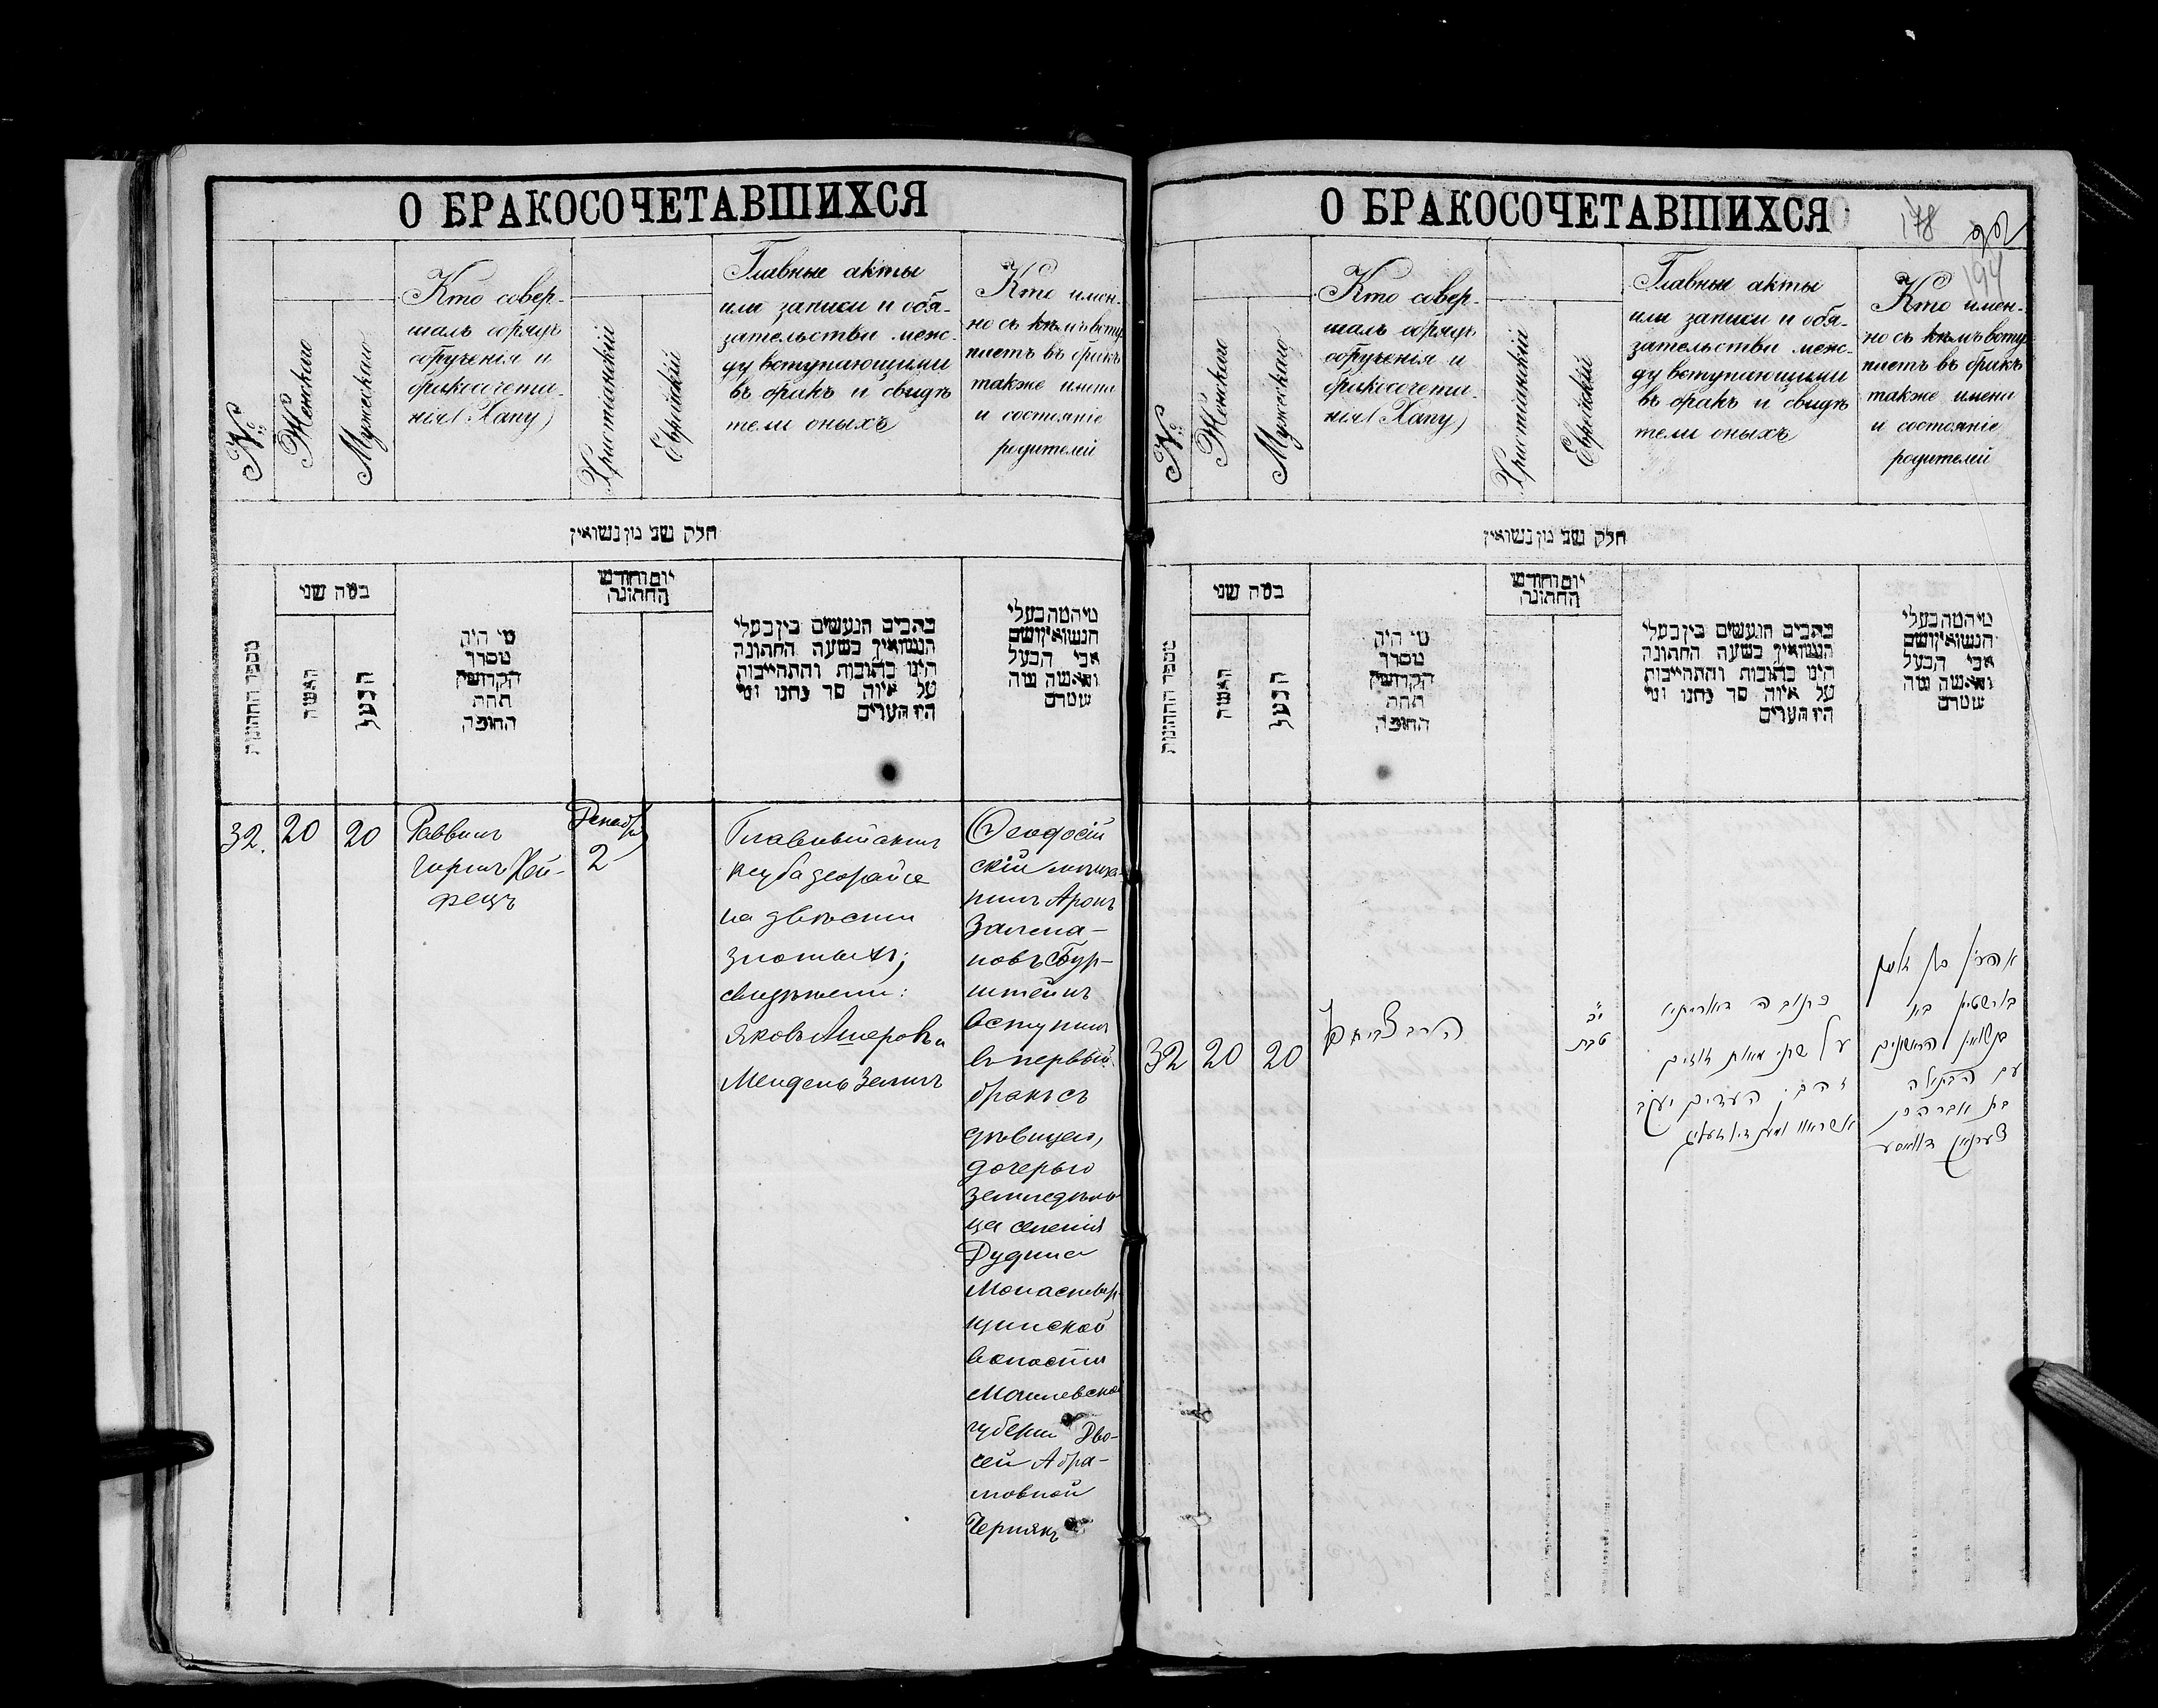 О БРАКОСОЧЕТАВШИХСЯ
№
Женскаго
Мужескаго
Кто совер-
шалъ обрядъ
обрученія и
бракосочета-
нія (Хапу)
Христіанскій
Еврейскій
Главные акты
или записи и обя-
зательства меж-
ду вступающими
въ бракъ и свидѣ
тели оныхъ
Кто имен-
но съ кѣмъ всту
паетъ въ бракъ
также имена
и состояніе
родителей
חלק שני מן נשואין
מספר החתונות
כמה שני
האשה
הבעל
מי היה
מסדר
הקדושין
תחת
החופה
יום וחודש
החתונה
כתבים הנעשים בין בעלי
הנשואין בשעה החתונה
היינו כתובות והתחייבות
על איזה סך נתנו ומי
היו העדים
מי המה בעלי
הנשואין ושם
אבי הבעל
והאשה מה
שמם
32.
20
20
Раввинъ
Гиршъ Хей-
фецъ
Декабр
2
Главный актъ
ксуба деорайса
на двѣсти
злотыхъ;
свидѣтели:
Яковъ Ашеровъ и
Мендель Зеличъ
Ѳеодосій
скій мѣща-
нинъ Аронъ
Залма-
новъ Бур-
штейнъ
вступилъ
въ первый
бракъ съ
дѣвицею,
дочерью
земледѣль
ца селенія
Рудня
Монастыр
щинской
волости
Могилевской
губерніи Дво-
сей Абра-
мовной
Чернякъ
О БРАКОСОЧЕТАВШИХСЯ
178
194
№
Женскаго
Мужескаго
Кто совер-
шалъ обрядъ
обрученія и
бракосочета-
нія (Хапу)
Христіанскій
Еврейскій
Главные акты
или записи и обя-
зательства меж-
ду вступающими
въ бракъ и свидѣ
тели оныхъ
Кто имен-
но съ кѣмъ всту
паетъ въ бракъ
также имена
и состояніе
родителей
חלק שני מן נשואין
מספר החתונות
כמה שני
האשה
הבעל
מי היה
מסדר
הקדושין
תחת
החופה
יום וחודש
החתונה
כתבים הנעשים בין בעלי
הנשואין בשעה החתונה
היינו כתובות והתחייבות
על איזה סך נתנו ומי
היו העדים
מי המה בעלי
הנשואין ושם
אבי הבעל
והאשה מה
שמם
32
20
20
הרב
טבת
כתובה דאורייתא
על שתי מאות זוזים
זהב: העדים יעקב
אהרן בן זלמן
בורשטין בא
בנשואין הראשונים
עם הבתולה
בת אברהם